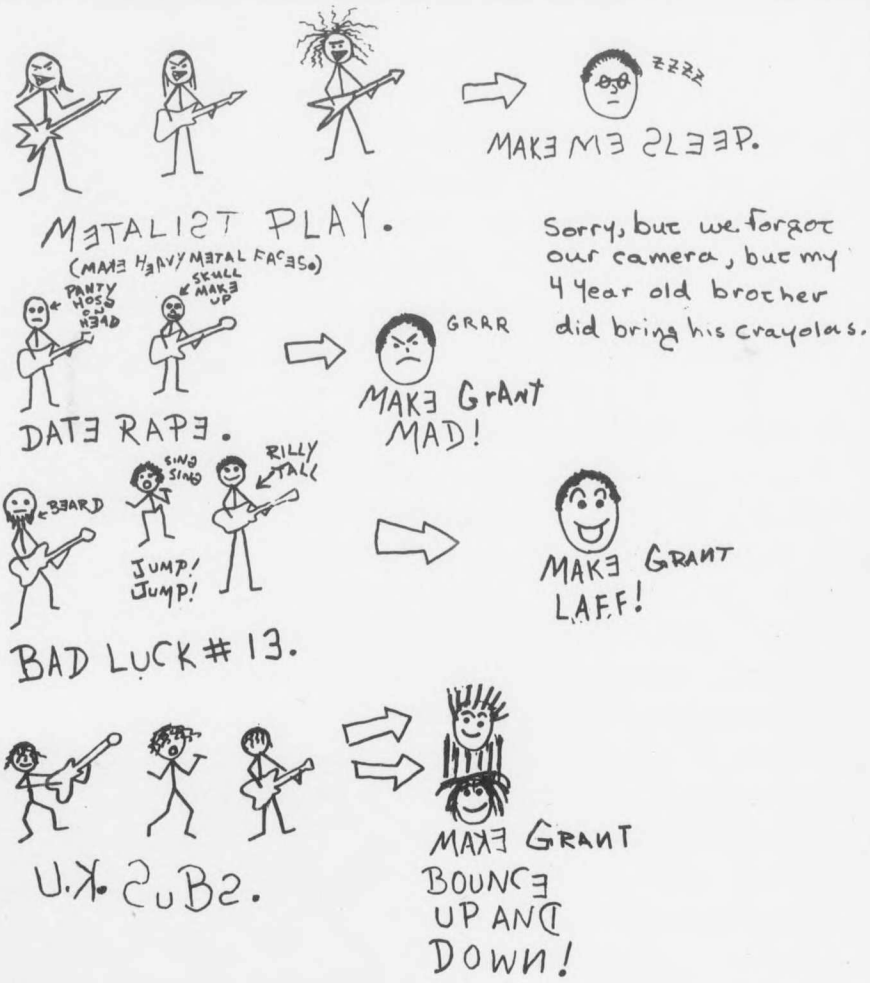 ZZZZ
MAKE ME SLEEP.
METALIST PLAY.
(MAKE HEAVY METAL FACES.)
Sorry, but we forgot
our camera, but my
4 year old brother
did bring his crayolas.
PANTY
HOSE
ON
HEAD
SKULL
MAKE
UP
GRRR
MAKE GrANT
MAD!
DATE RAPE.
BEARD
SING
SING
RILLY
TALL
JUMP!
JUMP!
MAKE GRANT
LAFF!
BAD LUCK # 13.
U.K. SuBS.
MAKE GRANT
BOUNCE
UP AND
DOWN!